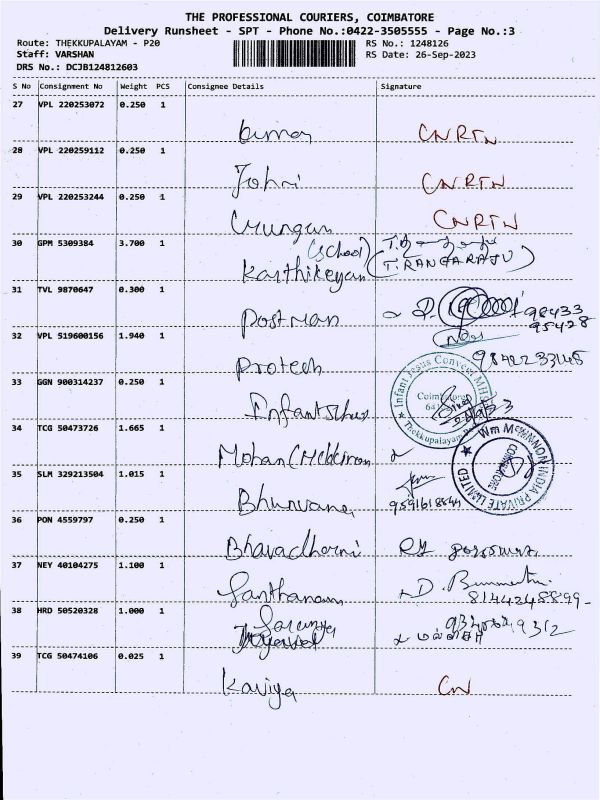 THE PROFESSIONAL COURIERS, COIMBATORE
Delivery Runsheet - SPT - Phone No.:0422-3505555 - Page No.:3
Route: THEKKUPALAYAM - P20 RS No.: 1248126
Staff: VARSHAN RS Date: 26-Sep-2023
DRS No.: DCJB124812603
S No Consignment No Weight PCS Consignee Details Signature
27 VPL 220253072 0.250 1
Kumar CNRTN
28 VPL 220259112 0.250 1
CNRTN
29 VPL 220253244 0.250 1
CNRTN
30 GPM 5309384 3.700 1
(School)
Karthikeyan (T.RANGARAJU)
31 TVL 9870647 0.300 1
Postman 98433
95428
32 VPL 519600156 1.940 1
Protech
33 GGN 900314237 0.250 1
Infant Jesus Convent MHSS
Coimbatore
Thekkupalayam
34 TCG 50473726 1.665 1
Mohan
Wm McKINNON INDIA PRIVATE LIMITED
COIMBATORE
35 SLM 329213504 1.015 1
Bhuvana
36 PON 4559797 0.250 1
Bhavadharni
37 NEY 40104275 1.100 1
Santhanam
8144248899
38 HRD 50520328 1.000 1
Saranya
39 TCG 50474106 0.025 1
Kaviya CN